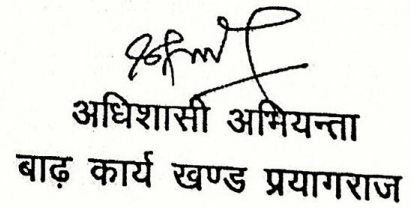 अधिशासी अभियन्ता
बाढ़ कार्य खण्ड प्रयागराज